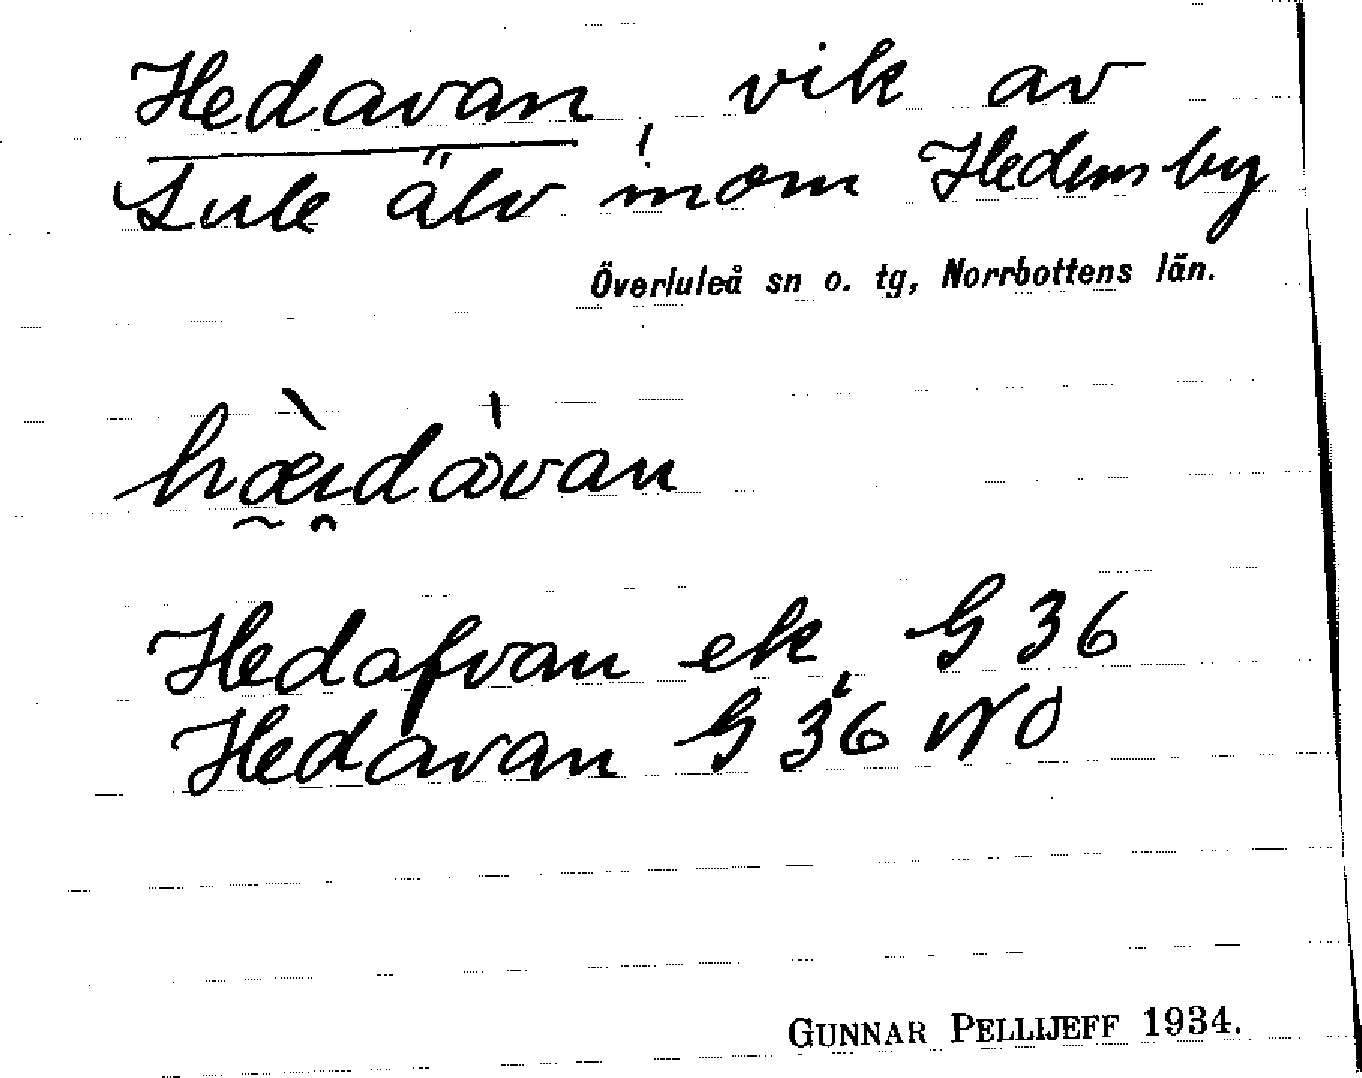 Hedavan, vik av
Lule älv inom Hedens by
Överluleå sn o. tg, Norrbottens län.
hæ̀i̯dàvan
Hedafvan ek, G 36
Hedavan G 36 NO
GUNNAR PELLIJEFF 1934.